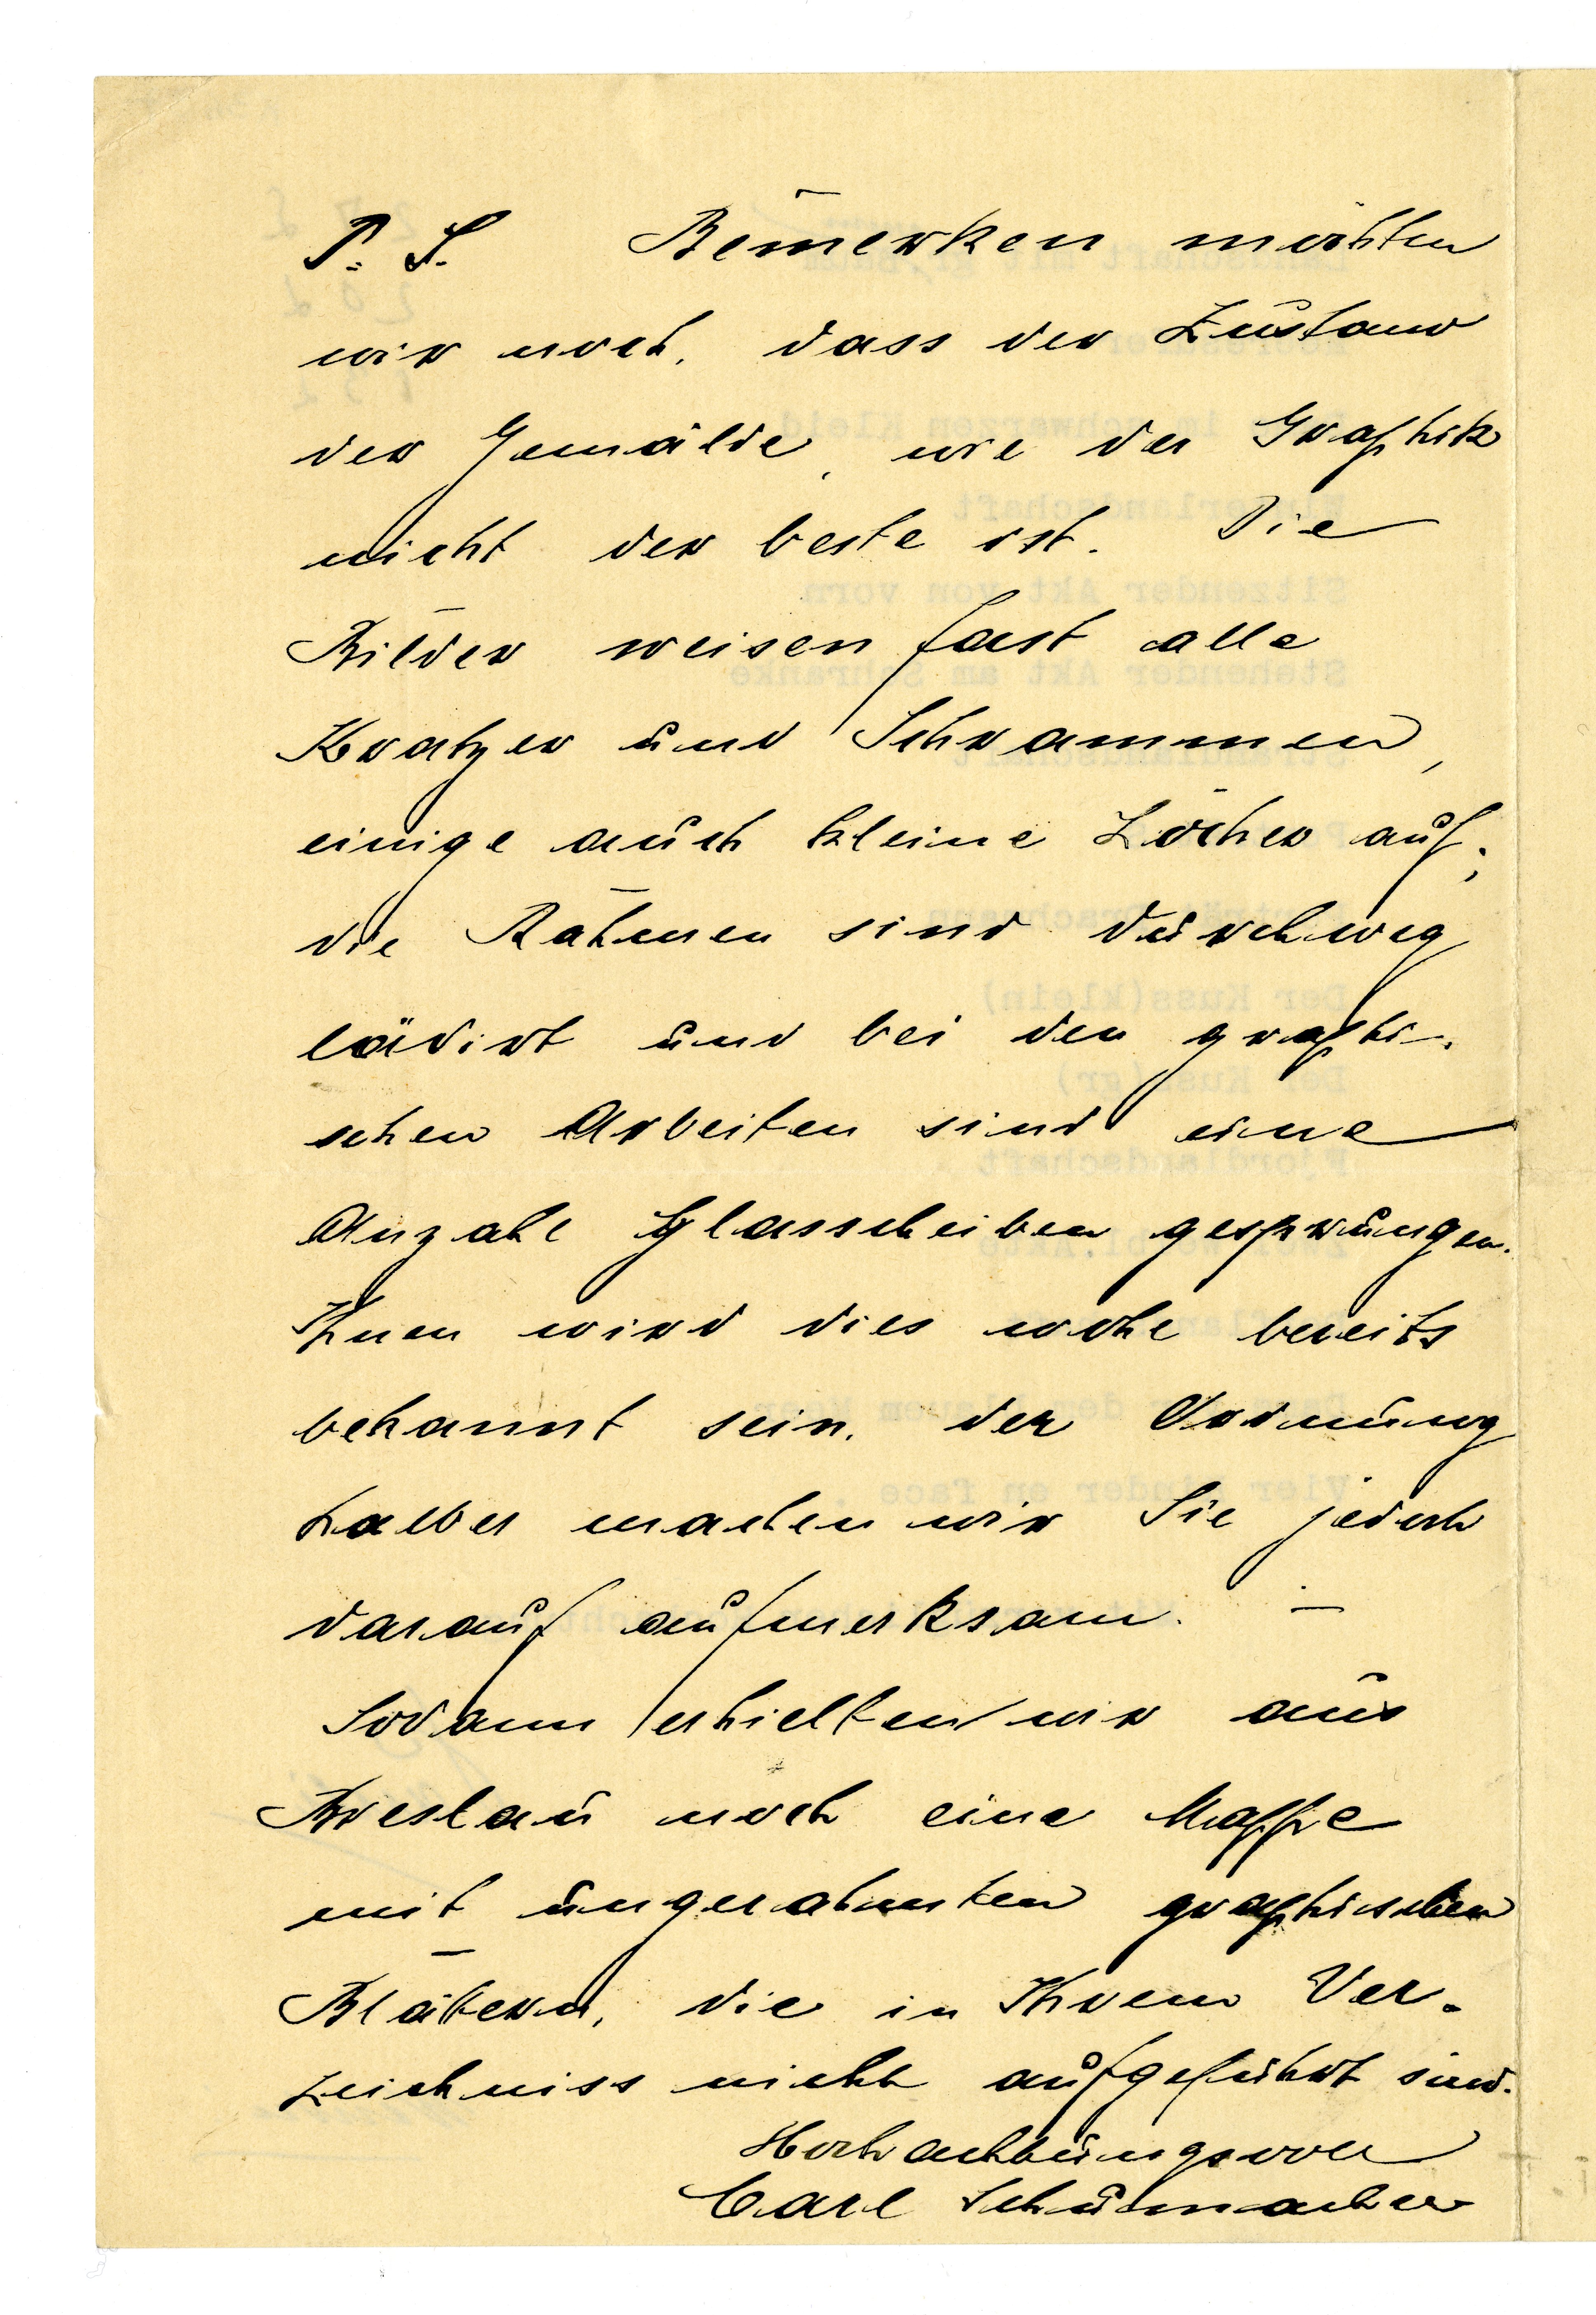 P. S. Bemerken möchten
wir noch, dass der Zustand
der Gemälde, wie der Graphik
nicht der beste ist. Die
Bilder weisen fast alle
Kratzer und Schrammen,
einige auch kleine Löcher auf;
die Rahmen sind durchweg
lädirt und bei den graphi-
schen Arbeiten sind eine
Anzahl Glasscheiben gesprungen.
Ihnen wird dies wohl bereits
bekannt sein, der Ordnung
halber machen wir Sie jedoch
darauf aufmerksam. —
Sodann erhielten wir aus
Breslau noch eine Mappe
mit ungerahmten graphischen
Blättern, die in Ihrem Ver-
zeichniss nicht aufgeführt sind.
Hochachtungsvoll
Carl Schumacher